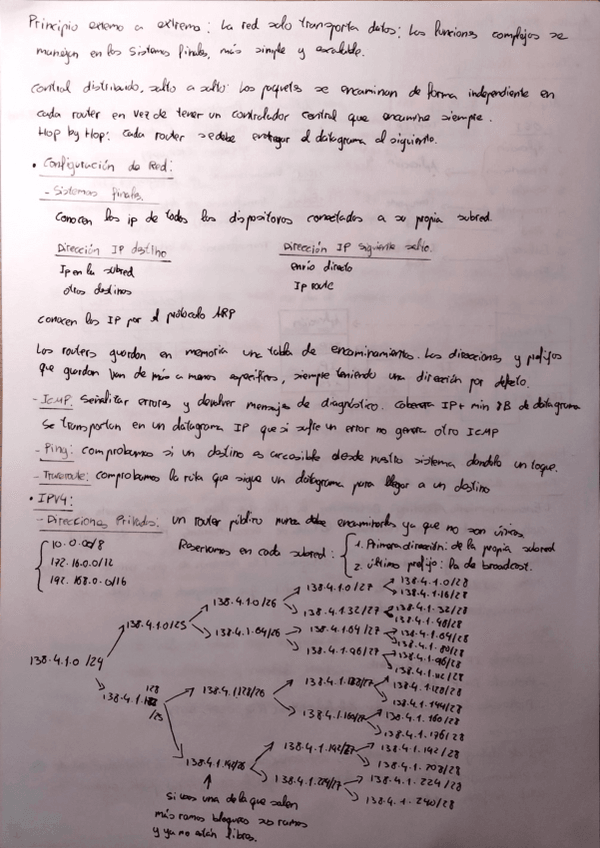 Principio extremo a extremo: La red solo transporta datos; Las funciones complejas se
manejan en los sistemas finales, más simple y escalable.
Control distribuido, salto a salto: Los paquetes se encaminan de forma independiente en
cada router en vez de tener un controlador central que encamine siempre.
Hop by Hop: cada router se debe entregar el datagrama al siguiente.
• Configuración de Red:
- Sistemas finales.
Conocen las ip de todos los dispositivos conectados a su propia subred.
Dirección IP destino
Dirección IP siguiente salto.
Ip en la subred
envío directo
otros destinos
IP route
conocen las IP por el protocolo ARP
Los routers guardan en memoria una tabla de encaminamientos. Las direcciones y prefijos
que guardan van de más a menos específicos, siempre teniendo una dirección por defecto.
- ICMP: Señalizar errores y devolver mensajes de diagnóstico. Cabecera IP + min 8B de datagrama
Se transportan en un datagrama IP que si sufre un error no genera otro ICMP
- Ping: comprobamos si un destino es accesible desde nuestro sistema dandole un toque.
- Traceroute: comprobamos la ruta que sigue un datagrama para llegar a un destino
• IPV4:
- Direcciones Privadas: un router público nunca debe encaminarlas ya que no son únicas.
10.0.0.0/8
172.16.0.0/12
192.168.0.0/16
Reservamos en cada subred:
1. Primera dirección: de la propia subred
2. último prefijo: la de broadcast.
138.4.1.0/24
138.4.1.0/25
138.4.1.128
/25
138.4.1.0/26
138.4.1.64/26
138.4.1.128/26
138.4.1.192/26
138.4.1.0/27
138.4.1.32/27
138.4.1.64/27
138.4.1.96/27
138.4.1.128/27
138.4.1.160/27
138.4.1.192/27
138.4.1.224/27
138.4.1.0/28
138.4.1.16/28
138.4.1.32/28
138.4.1.48/28
138.4.1.64/28
138.4.1.80/28
138.4.1.96/28
138.4.1.112/28
138.4.1.128/28
138.4.1.144/28
138.4.1.160/28
138.4.1.176/28
138.4.1.192/28
138.4.1.208/28
138.4.1.224/28
138.4.1.240/28
si usas una de la que salen
más ramas bloqueas sus ramas
y ya no están libres.